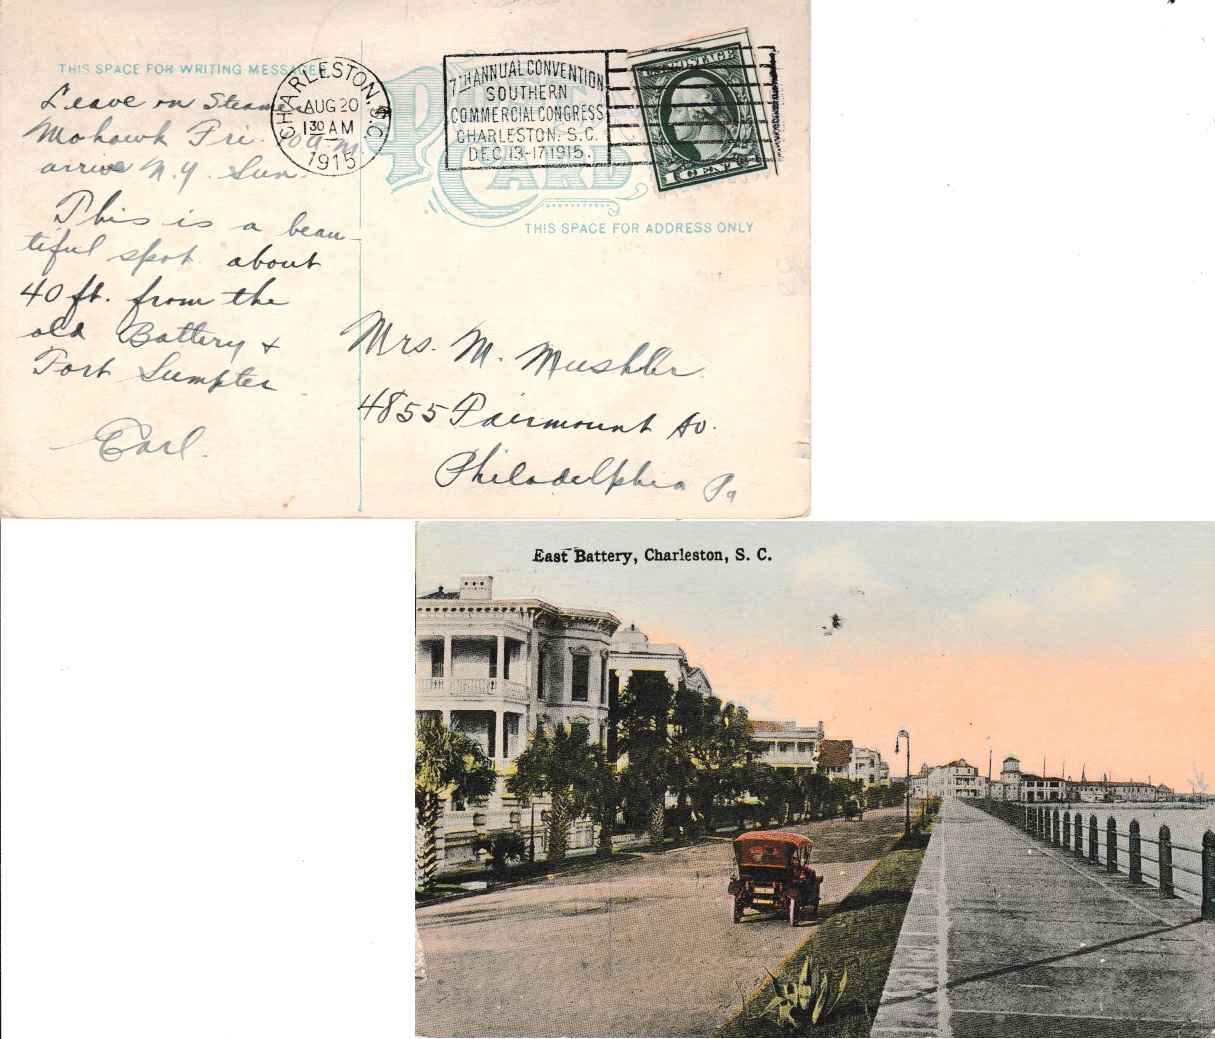 THIS SPACE FOR WRITING MESSAGES
Leave on Steamer
Mohawk Fri. 10 a.m.
arrive N.Y. Sun.
This is a beau-
tiful spot about
40 ft. from the
old Battery +
Fort Sumpter
Earl.
CHARLESTON, S.C.
AUG 20
1 30 AM
1915
7TH ANNUAL CONVENTION
SOUTHERN
COMMERCIAL CONGRESS
CHARLESTON, S.C.
DEC. 13-17-1915.
U.S. POSTAGE
1 CENT 1
POST CARD
THIS SPACE FOR ADDRESS ONLY
Mrs. M. Mushler
4855 Fairmount Av.
Philadelphia Pa
East Battery, Charleston, S. C.